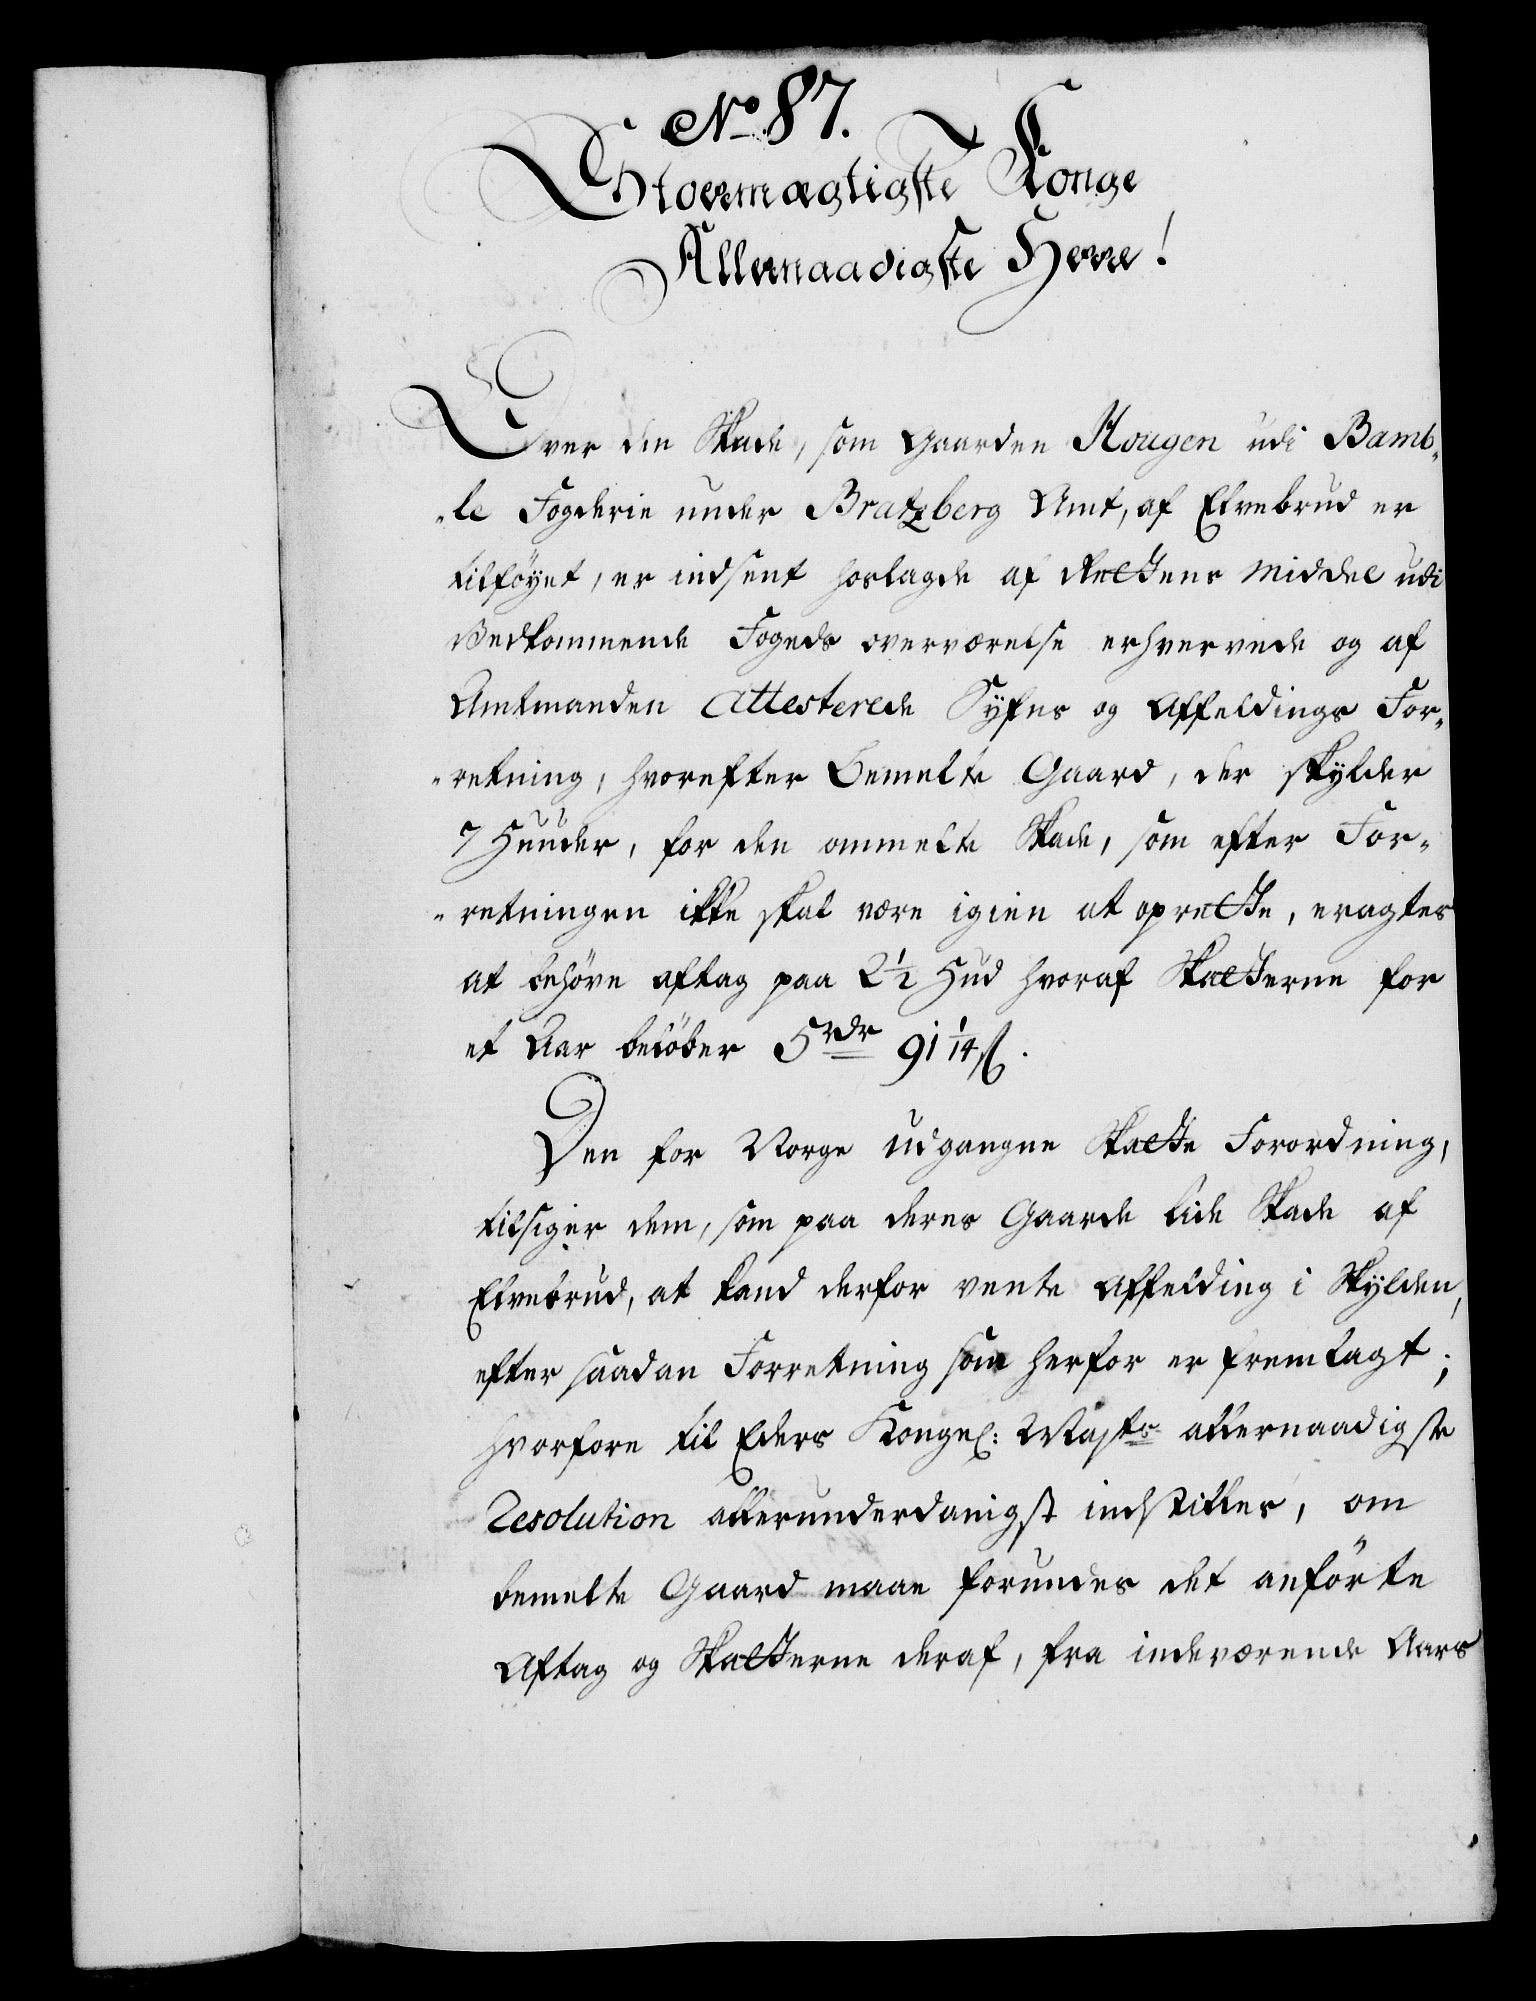 No 87.
Stormægtigste Konge
Allernaadigste Herre!
Over den Skade, som Gaarden Hougen udi Bamb-
-le Fogderie under Bratzberg Amt, af Elvebrud er
tilföyet, er indsent hoslagde af Rettens Middel udi
Vedkommende Fogeds overværelse erhvervede og af
Amtmanden Attesterede Syfns og Affeldings For-
-retning, hvorefter bemelte Gaard, der skylder
7 Huuder, for den ommelte Skade, som efter For-
-retningen ikke skal være igien at oprette, eragtes
at behöve aftag paa 2 1/2 Hud hvoraf Skatterne for
et Aar belöber 5 rdr 91 1/14 ß.
Den for Norge udgangne Skatte Forordning,
tilsiger dem, som paa deres Gaarde lide Skade af
Elvebrud, at kand derfor vente Affelding i Skylden,
efter saadan Forretning som herfor er fremlagt;
hvorfore til Eders Kongel: Majts allernaadigste
Resolution allerunderdanigst indstilles, om
bemelte Gaard maae forundes det anförte
Aftag og Skatterne deraf, fra indeværende Aars